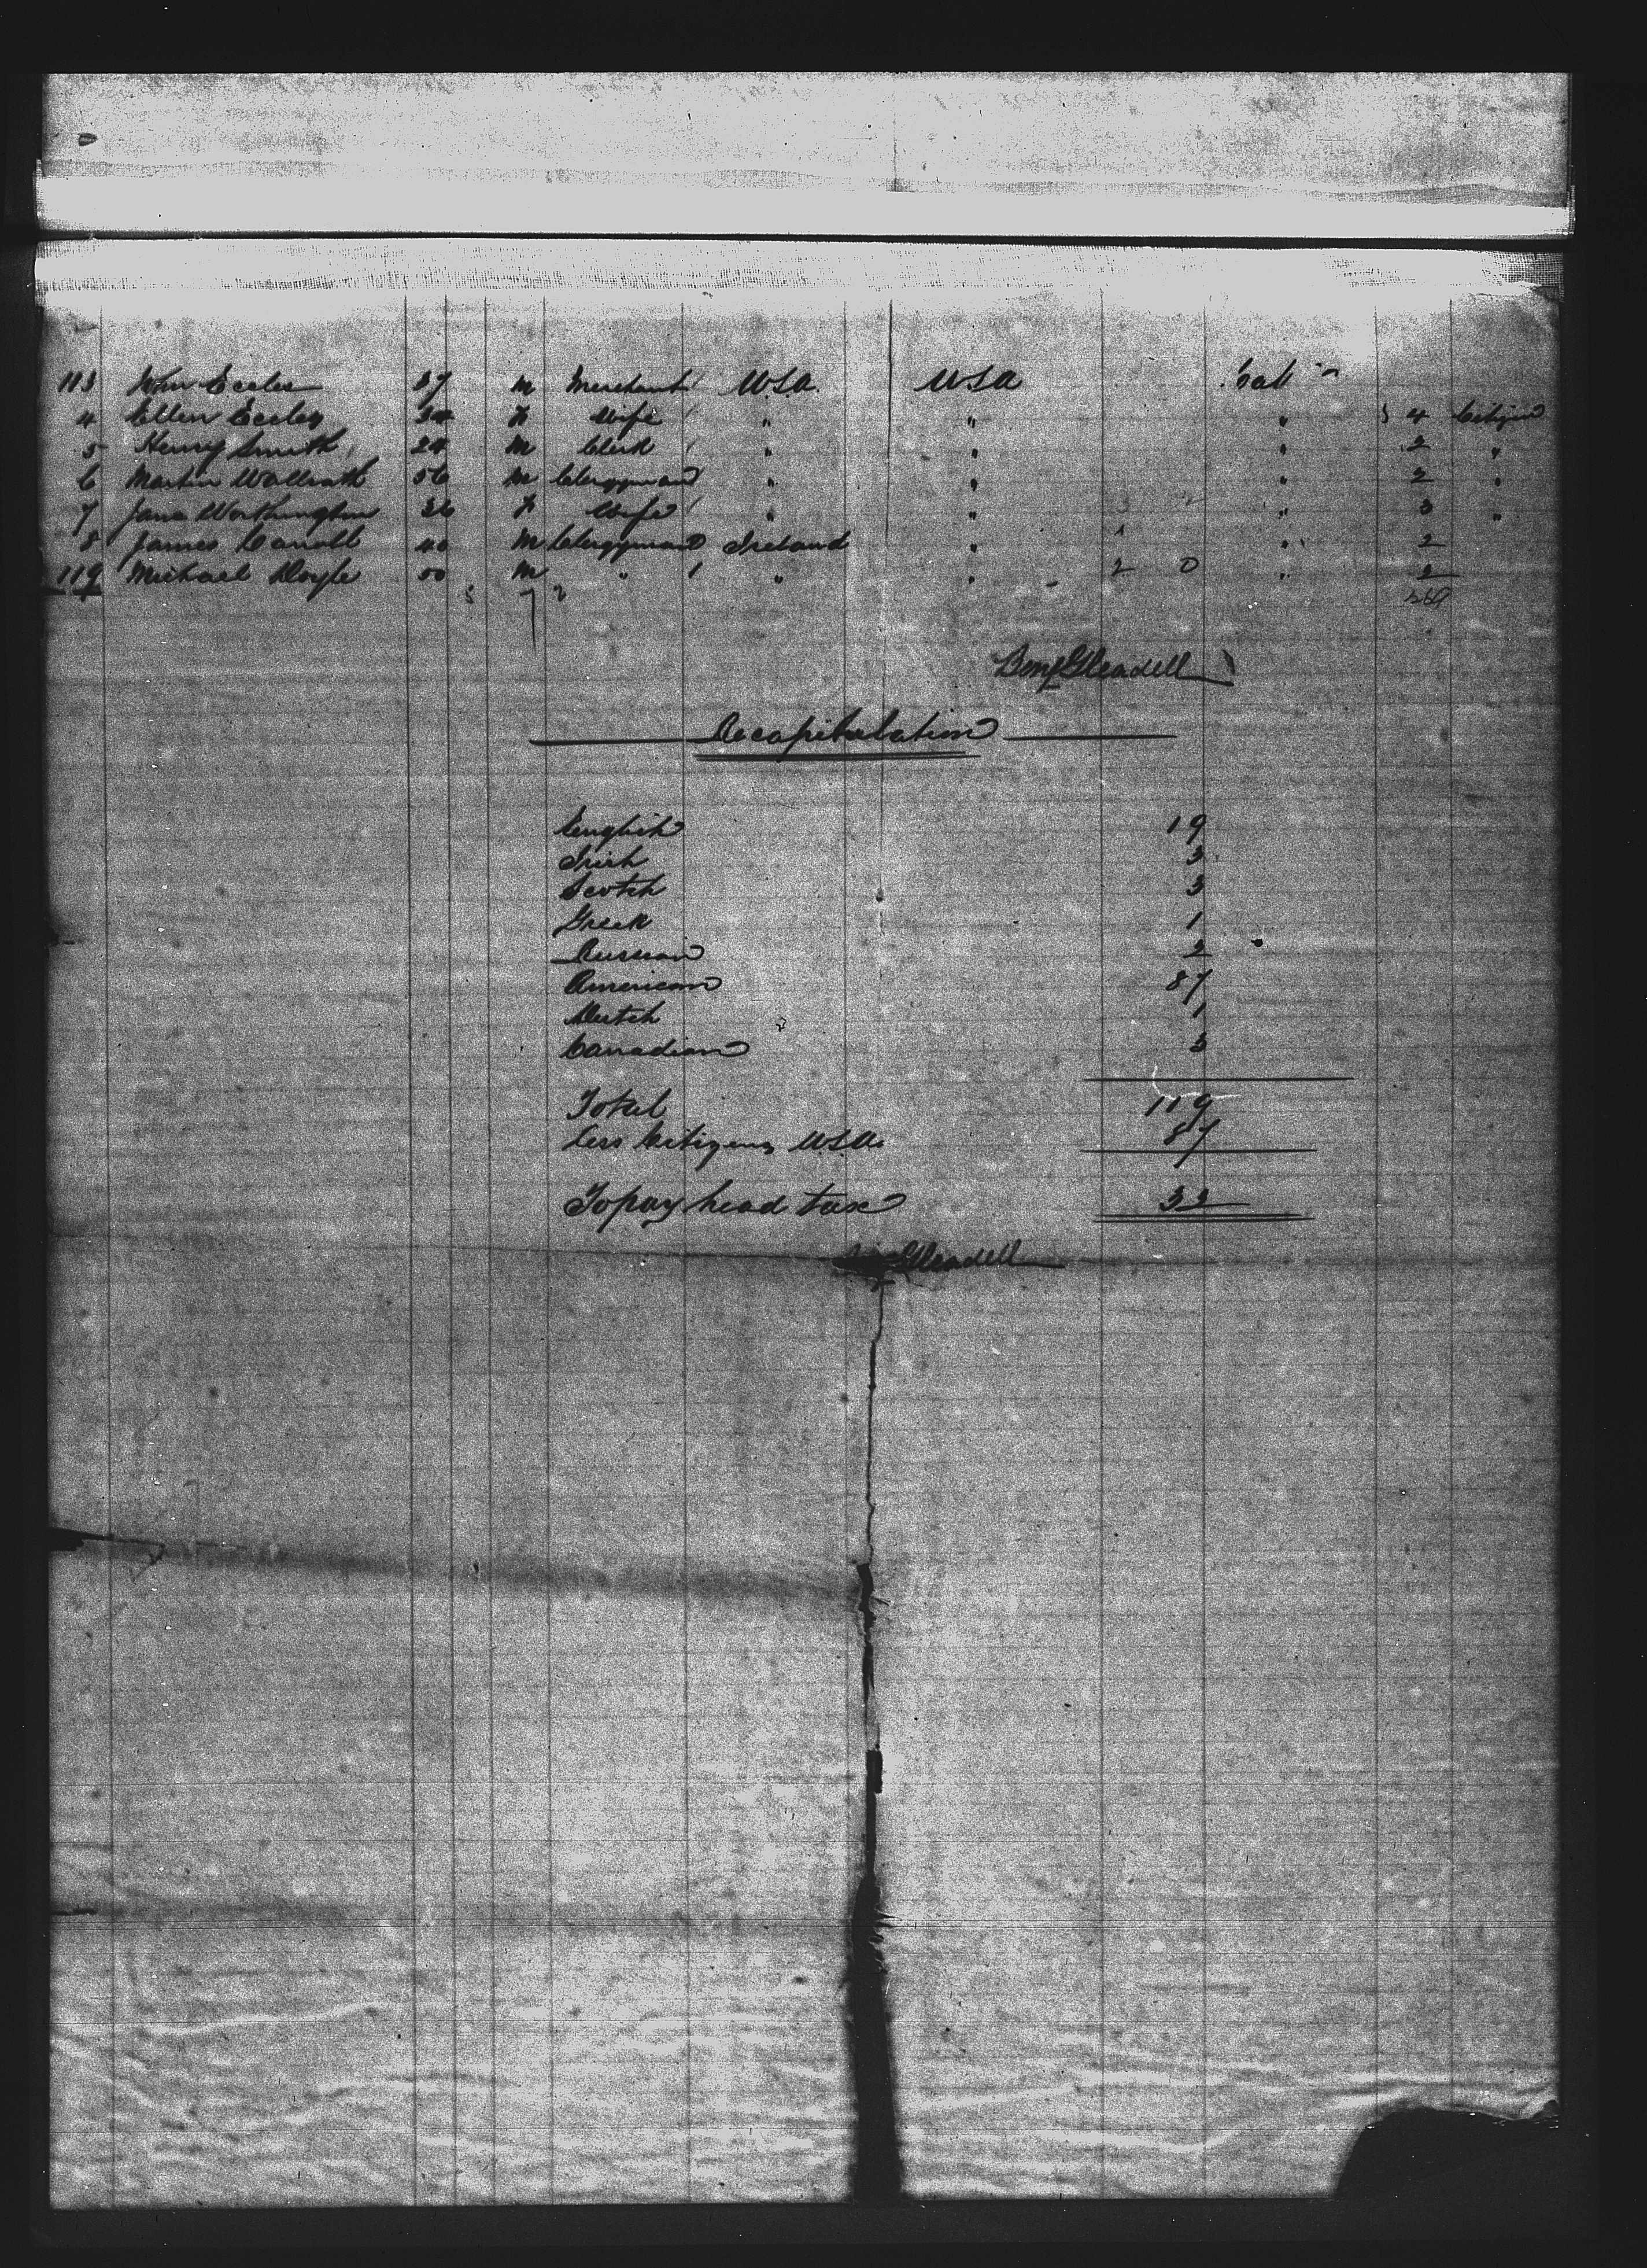 113 Wm Eccles 37 M Merchant U.S.A. U.S.A
4 Ellen Eccles 34 F Wife " " " 4 Citizen
5 Henry Smith 24 M Clerk " " " 2 "
6 Martin Wallrath 56 M Clergyman " " " 2 "
7 Jane Worthington 36 F Wife " " " 3 "
8 James Carroll 40 M Clergyman Ireland " " 2
119 Michael Doyle 50 M " " " 2 0 " 2
Benj Gleadell
Recapitulation
English 19
Irish 3
Scotch 3
Greek 1
Russian 2
American 87
Dutch 1
Canadian 3
Total 119
Less Citizens U.S.A. 87
To pay head tax 32
Gleadell